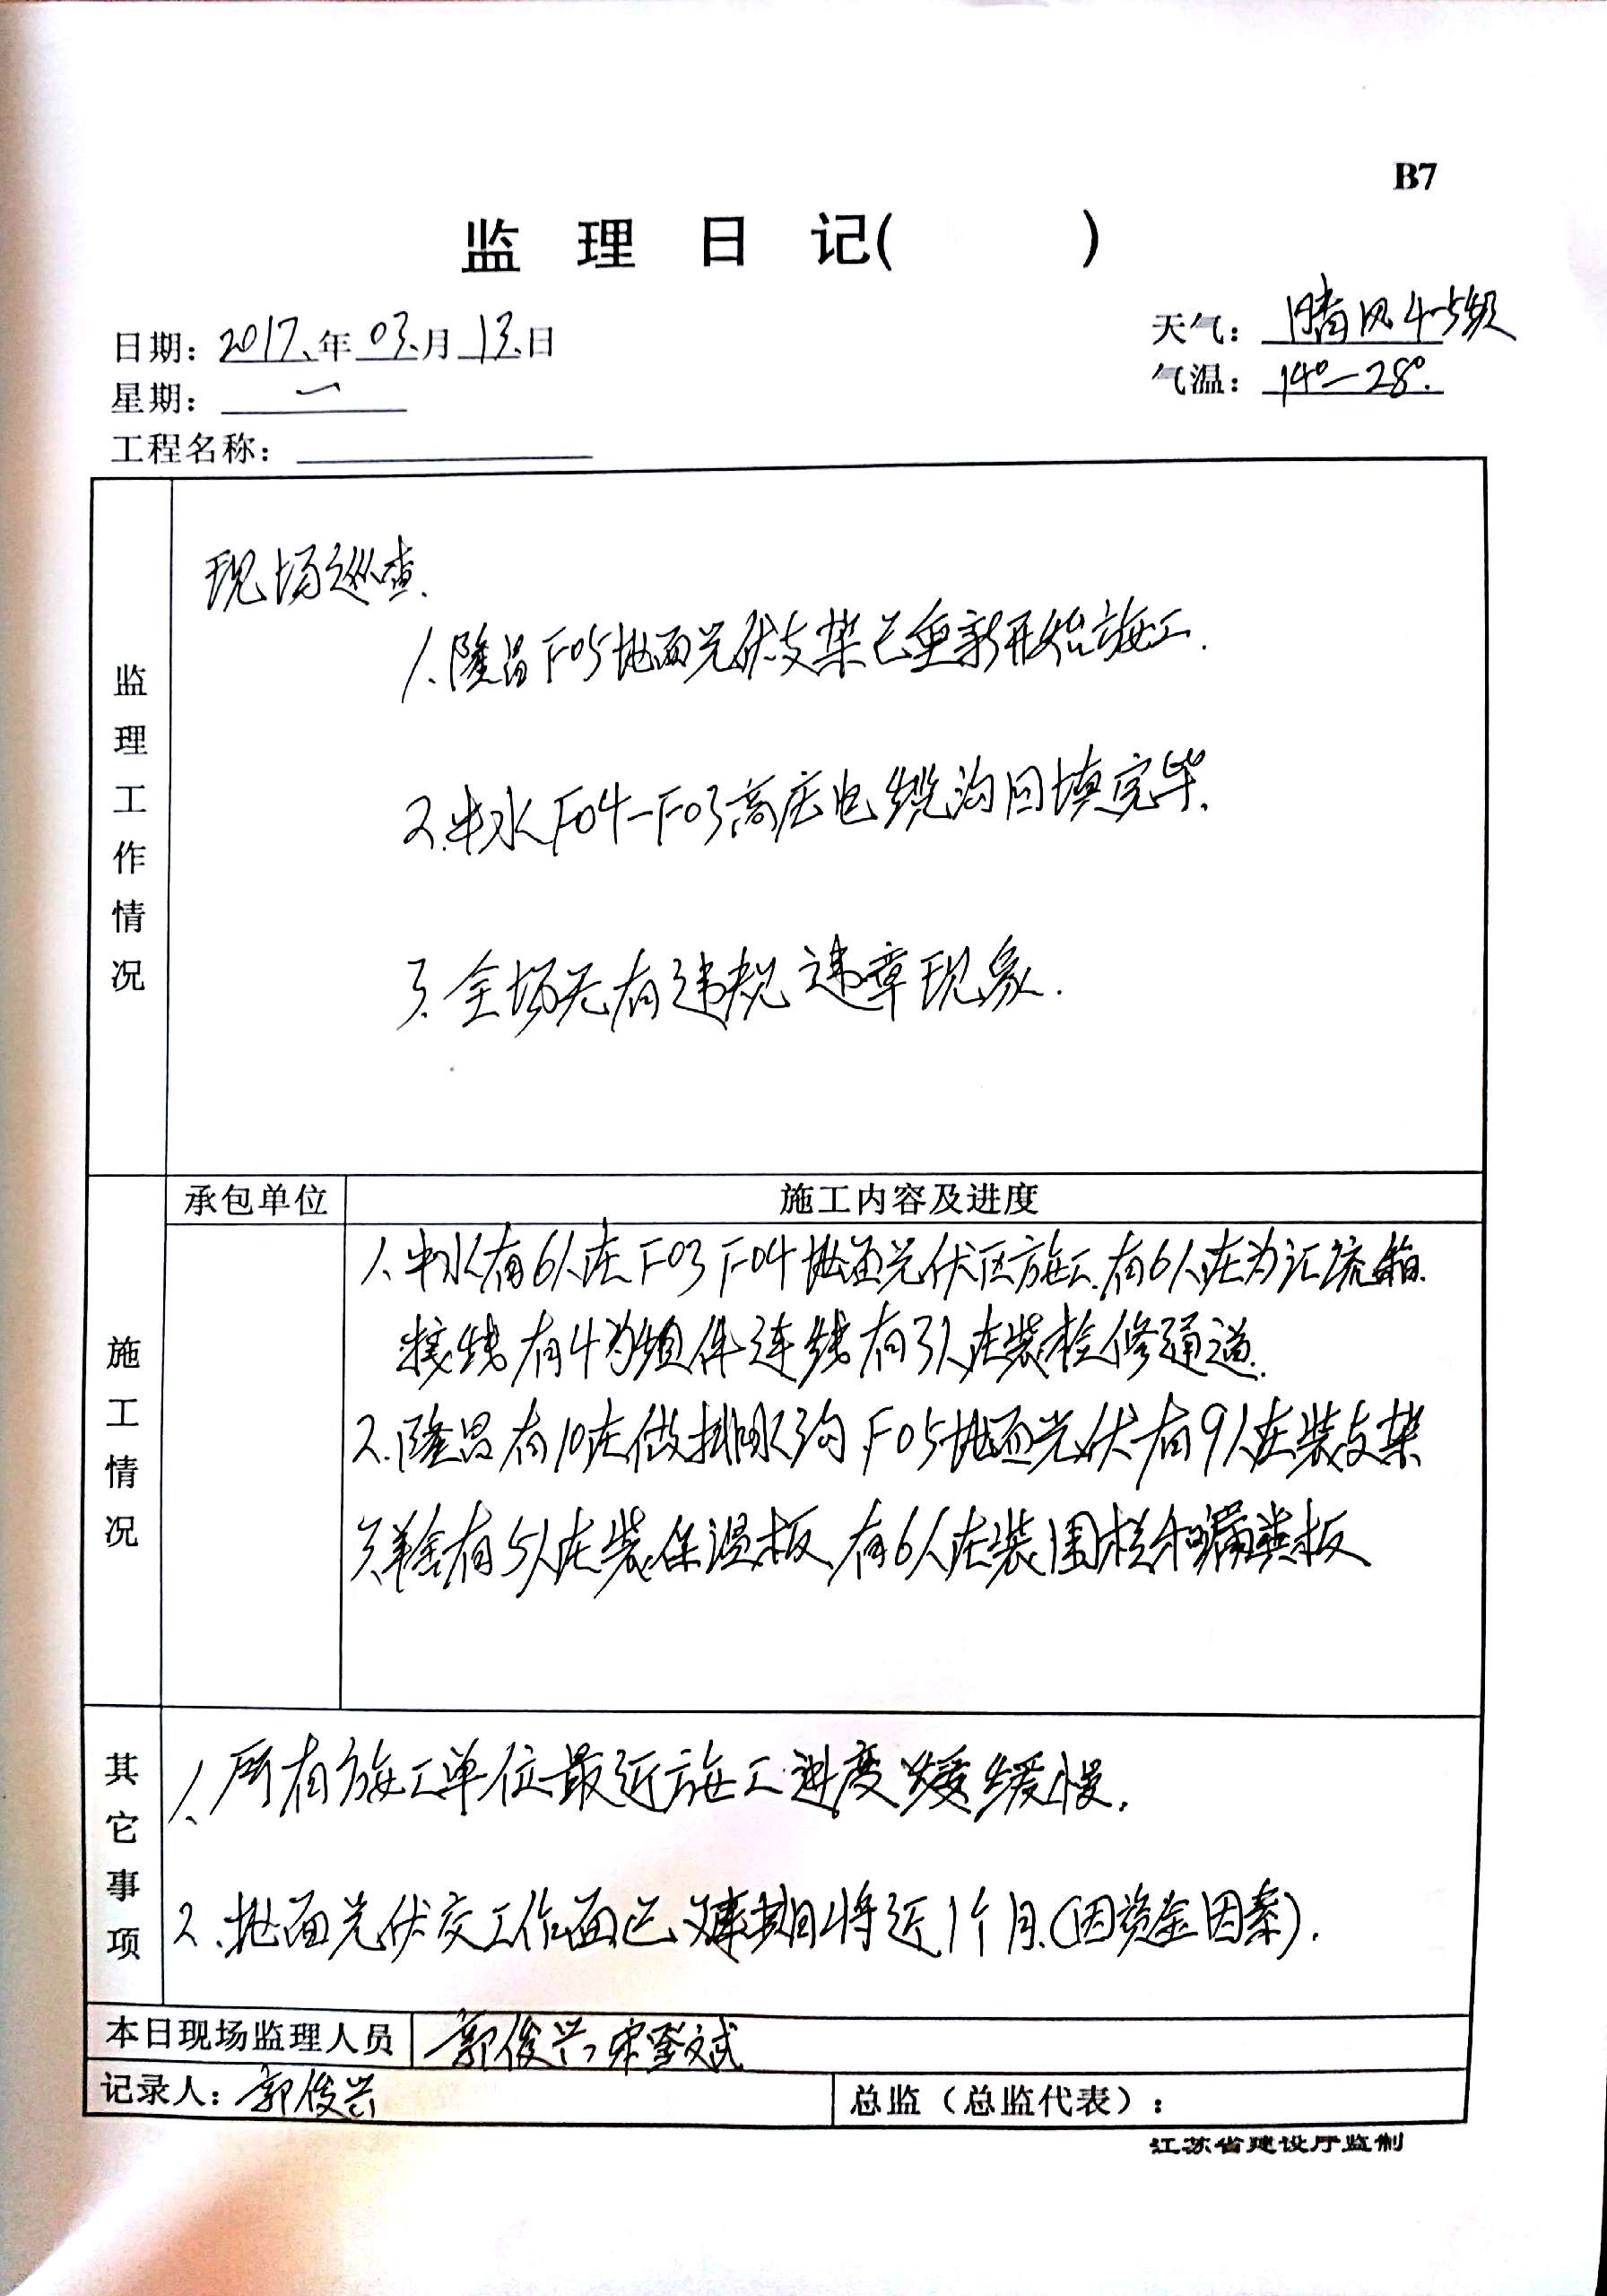 B7
监理日记( )
日期：2017年03月13日
天气：晴风4-5级
星期：一
气温：14°—28°.
工程名称：
监理工作情况
现场巡查.
1、隆昌F05地面光伏支架已重新开始施工.
2.中水F04-F03高压电缆沟回填完毕.
3.全场无有违规违章现象.
承包单位
施工内容及进度
施工情况
1、中水有6人在F03 F04地面光伏区施工.有6人在为汇流箱
接线有4为组件连线有3人在装检修通道.
2.隆昌有10在做排水沟,F05地面光伏有9人在装支架
3.羊舍有5人在装保温板,有6人在装围栏和漏粪板
其它事项
1、所有施工单位最近施工进度缓缓慢.
2、地面光伏交工作面已延期将近1个月.(因资金因素).
本日现场监理人员
郭俊兴、宋
记录人：郭俊兴
总监（总监代表）：
江苏省建设厅监制